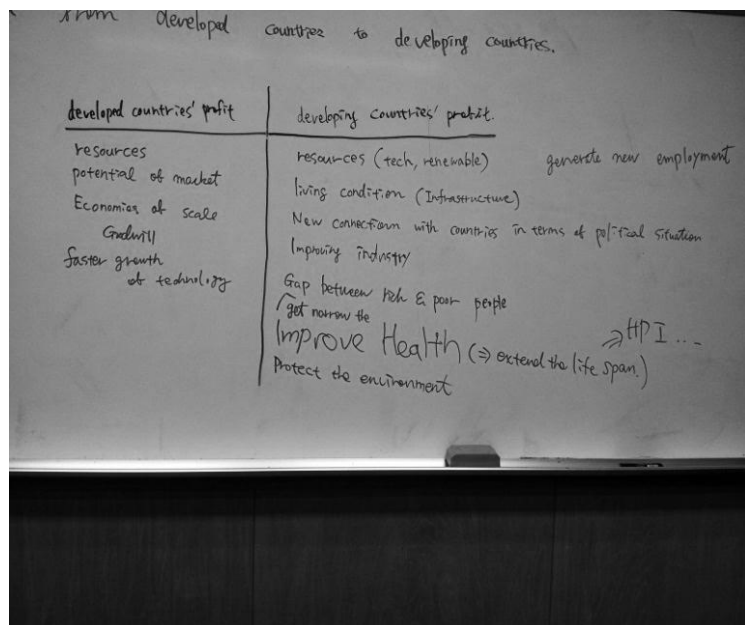 from developed countries to developing countries.
developed countries' profit
resources
potential of market
Economies of scale
Goodwill
faster growth
of technology
developing countries' profit.
resources (tech, renewable) generate new employment
living condition (Infrastructure)
New connections with countries in terms of political situation
Improving industry
Gap between rich & poor people
get narrow the
Improve Health (⇒ extend the life span.)
⇒ HPI...
Protect the environment